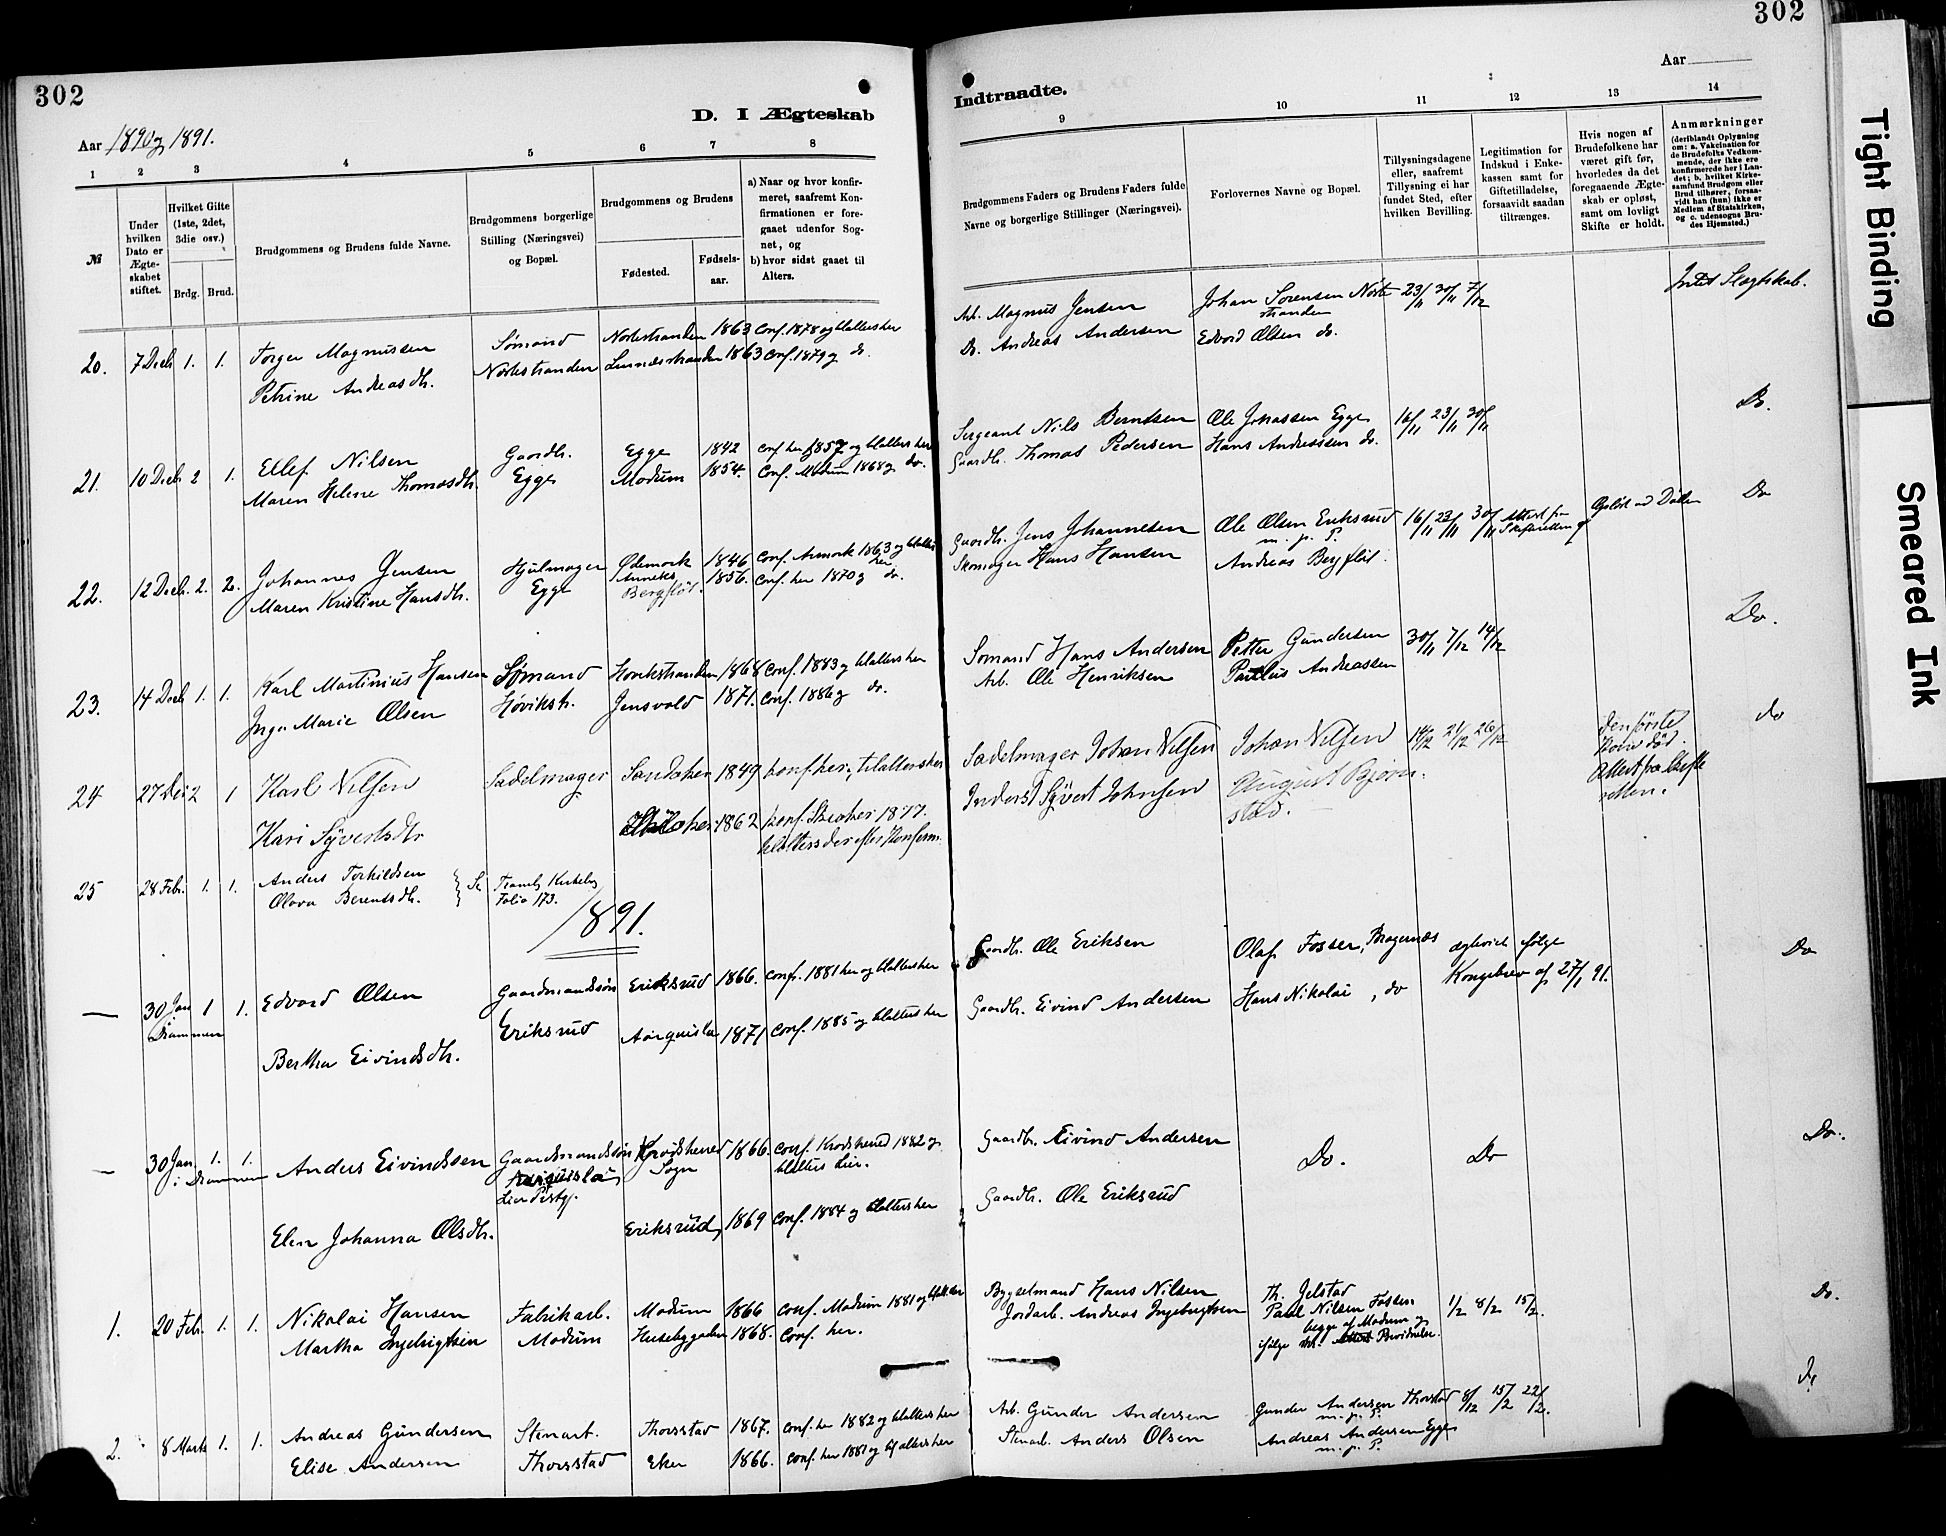 302
302
Aar 1890 og 1891.
D. I Ægteskab
Indtraadte.
Aar
1 2 3 4 5 6 7 8
9 10 11 12 13 14
№
Under hvilken Dato er Ægteskabet stiftet.
Hvilket Gifte (1ste, 2det, 3die osv.)
Brdg. Brud.
Brudgommens og Brudens fulde Navne.
Brudgommens borgerlige Stilling (Næringsvei) og Bopæl.
Brudgommens og Brudens
Fødested.
Fødsels-aar.
a) Naar og hvor konfirmeret, saafremt Konfirmationen er foregaaet udenfor Sognet, og
b) hvor sidst gaaet til Alters.
Brudgommens Faders og Brudens Faders fulde Navne og borgerlige Stillinger (Næringsvei).
Forlovernes Navne og Bopæl.
Tillysningsdagene eller, saafremt Tillysning ei har fundet Sted, efter hvilken Bevilling.
Legitimation for Indskud i Enkekassen samt for Giftetilladelse, forsaavidt saadan tiltrænges.
Hvis nogen af Brudefolkene har været gift før, hvorledes da det foregaaende Ægteskab er opløst, samt om lovligt Skifte er holdt.
Anmærkninger
(deriblandt Oplysning om: a. Vakcination for de Brudefolks Vedkommende, der ikke ere konfirmerede her i Landet; b. hvilket Kirkesamfund Brudgom eller Brud tilhører, forsaavidt han (hun) ikke er Medlem af Statskirken, og c. udensogns Brudes Hjemsted.)
20. 7 Decb 1. 1. Torger Magnussen Sømand Nordstranden 1863 Conf. 1878 og til alters her
Petrine Andreasdtr. Nordstranden 1863 Conf. 1879 og do.
Arb. Magnus Jensen Johan Sørensen Nordstranden 23/11 30/11 7/12 Intet Slægtskab.
Do. Andreas Andersen Edvard Olsen do.
21. 10 Decb 2 1. Ellef Nilsen Gaardb. Egge 1842 conf. her 1857 og til alters her
Maren Helene Thomasdtr. Egge Modum 1854. Conf. Modum 1868 og do.
Sergeant Nils Berntsen Ole Jonassen Egge 16/11 23/11 30/11 Do.
Gaardb. Thomas Pedersen Hans Andreassen do.
22. 12 Decb. 2. 2. Johannes Jensen Hjulmager Ødemark 1846 Conf. Aremark 1863 og til alters her
Maren Kristine Hansdtr. Egge Anneks Bergflöt. 1856. conf. her 1870 og do.
Gaardb. Jens Johannesen Ole Olsen Eriksrud 16/11 23/11 30/11 Attest fra Skifteretten Opløst ved Døden Do
m. p. P.
Skomager Hans Hansen Andreas Bergflöt.
23. 14 Decb 1. 1. Karl Martinius Hansen Sømand 1868 Conf. 1883 og til alters her
Inga Marie Olsen Høvikstr. Jensvold 1871. Conf. 1886 og do.
Sømand Hans Andersen Petter Gundersen 30/11 7/12 14/12 Do.
Arb. Ole Henriksen Paulus Andreassen
24 27 Dec 2 1 Karl Nilsen Sadelmager Sandaker 1849 konf her, til alters her
Kari Syvertsdtr 1862 konf. Skoger 1877.
til alters der efter Konform.
Sadelmager Johan Nilsen Johan Nilsen 14/12 21/12 26/12 Den første Kone død. Attest fra Skifteretten. do
Inderst Syvert Johnsen August Bjørnstad.
25 28 Feb. 1. 1. Anders Torkildsen
Olava Berentsdtr. } Se Tranby Kirkebog Folio 173.
1891.
— 30 Jan 1 1. Edvard Olsen Gaardmandssøn Eriksrud 1866. conf. 1881 her og til alters her
Drammen
Bertha Eivindsdtr. Eriksrud 1871 Conf. 1885 og til alters her
Gaardb. Ole Eriksen Olaf Fosser, Bragernæs ægteviet ifølge Kongebrev af 27/1 91. Do
Gaardb. Eivind Andersen Hans Nikolai, do
— 30 Jan. 1. 1. Anders Eivindssen Gaardmandssøn Krødsherred Sogn 1866. Conf. Krødsherred 1882 og til alters Lier.
i Drammen Lier Præstgj.
Elen Johanna Olsdtr. Eriksrud 1869 conf. 1884 og til alters her
Gaardb. Eivind Andersen Do. Do Do.
Gaardb. Ole Eriksrud
1. 20 Feb. 1. 1. Nikolai Hansen Fabrikarb. Modum 1866 Conf. Modum 1881 og til alt. her
Martha Ingebrigtsen Modum Husebygaten 1868. Conf. her.
Bygselmand Hans Nilsen Th. Jelstad 1/2 8/2 15/2. Do.
Jordarb. Andreas Ingebrigtsen Paul Nilsen Fossen
begge af Modum og
ifølge
2. 8 Marts 1. 1. Andreas Gundersen Stenarb. Thorstad 1867. Conf. her 1882 og til alters her
Elise Andersen Thorsstad Eker 1866. Conf. her 1881 og til alters her
Arb. Gunder Andersen Gunder Andersen Thorstad 8/2 15/2 22/2. Do
m. p. P.
Stenarb. Anders Olsen Andreas Andersen Egge
m. p. P.
Tight Binding
Smeared Ink